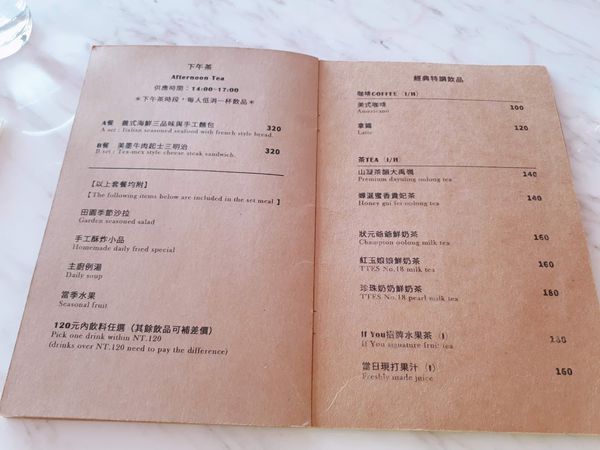 下午茶
Afternoon Tea
供應時間：14:00-17:00
＊下午茶時段，每人低消一杯飲品＊
A餐 義式海鮮三品味與手工麵包 320
A set : Italian seasoned seafood with french style bread.
B餐 美墨牛肉起士三明治 320
B set : Tex-mex style cheese steak sandwich.
【以上套餐均附】
【The following items below are included in the set meal】
田園季節沙拉
Garden seasoned salad
手工酥炸小品
Homemade daily fried special
主廚例湯
Daily soup
當季水果
Seasonal fruit
120元內飲料任選（其餘飲品可補差價）
Pick one drink within NT.120
(drinks over NT.120 need to pay the difference)
經典特調飲品
咖啡COFFEE（I/H）
美式咖啡 100
Americano
拿鐵 120
Latte
茶TEA（I/H）
山凝茶韻大禹嶺 140
Premium dayuling oolong tea
蜂涎蜜香貴妃茶 140
Honey gui fei oolong tea
狀元爺爺鮮奶茶 160
Champion oolong milk tea
紅玉娘娘鮮奶茶 160
TTES No.18 milk tea
珍珠奶奶鮮奶茶 180
TTES No.18 pearl milk tea
If You招牌水果茶（I）
If You signature fruit tea
當日現打果汁（I） 160
Freshly made juice